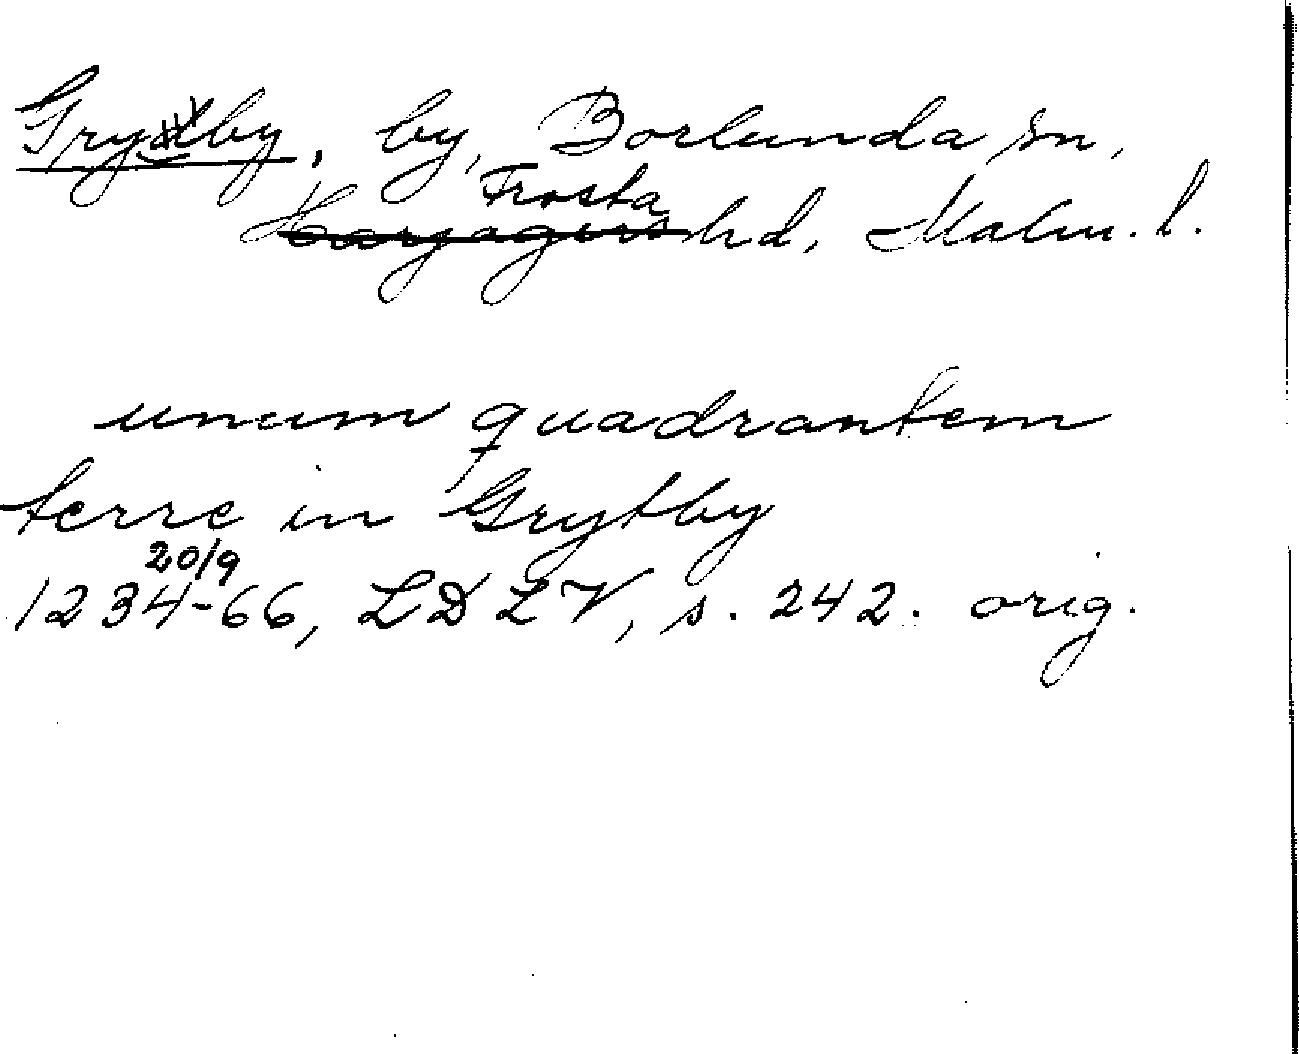 Gryttby, by, Borlunda sn,
Frosta
Harjagers hd, Malm. l.
unum quadrantem
terre in Grytby
20/9
1234-66, LDLV, s. 242. orig.